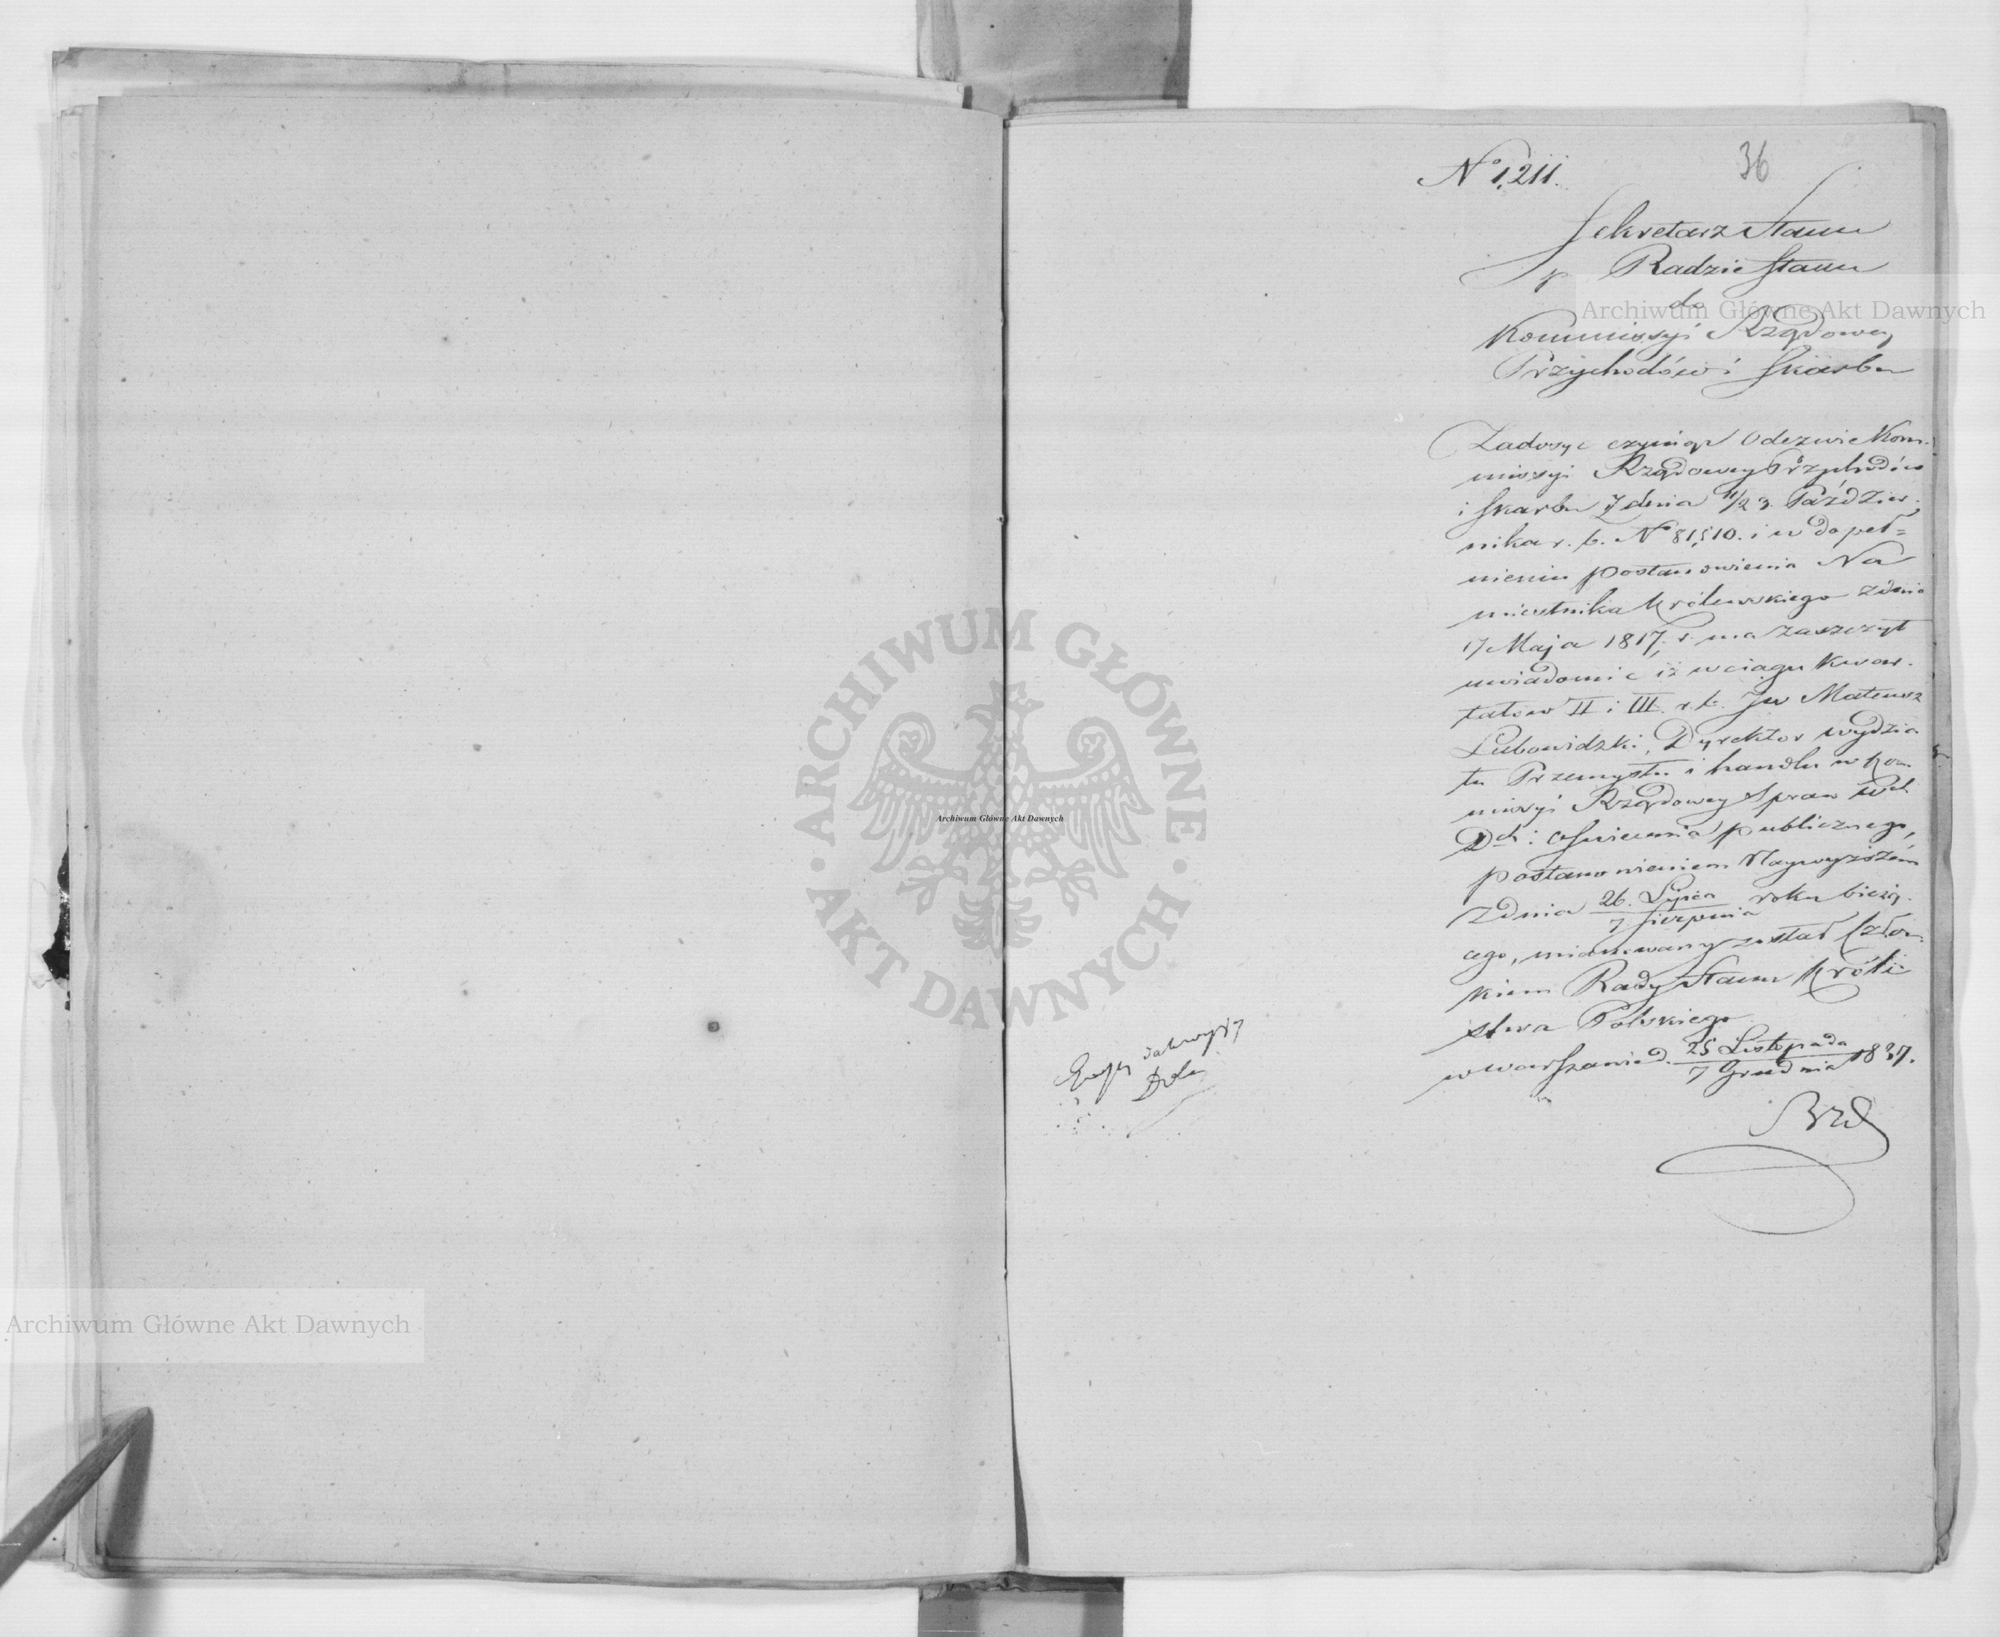 36
Nº 1,211.
Sekretarz Stanu
p. Radzie Stanu
do
Kommissyi Rządowey
Przychodów i Skarbu
Zadosyć czyniąc Odezwie Kom-
missyi Rządowey Przychodów
i Skarbu z dnia 11/23 Paździer-
nika r. b. Nº 81,510. i w dopeł=
nieniu postanowienia Na
miestnika Królewskiego z dnia
17 Maja 1817, r. ma zaszczyt
uwiadomić iż w ciągu Kwar-
tałów II i III. r. b. JW Mateusz
Lubowidzki, Dyrektor wydzia
łu Przemysłu i handlu w Kom
missyi Rządowey Spraw Wch
Dch i Oświecenia publicznego,
postanowieniem Naywyższém
z dnia 26. Lipca / 7 Sierpnia roku bieżą-
cego, mianowany został Człon-
kiem Rady Stanu Króle
stwa Polskiego
w Warszawie d. 25 Listopada / 7 Grudnia 1837.
Archiwum Główne Akt Dawnych
Archiwum Główne Akt Dawnych
ARCHIWUM GŁÓWNE
AKT DAWNYCH
Archiwum Główne Akt Dawnych